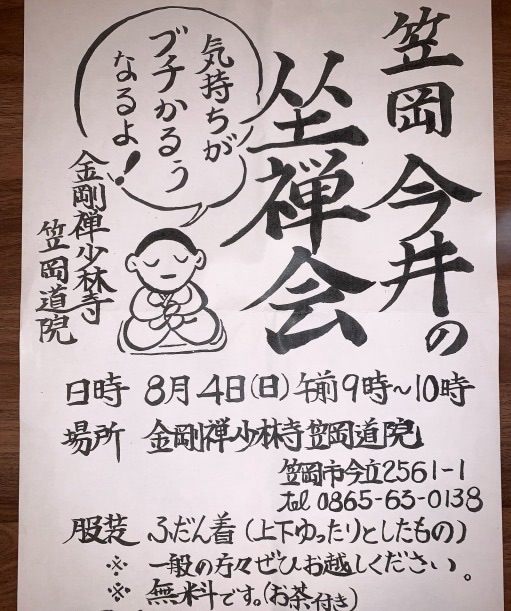 笠岡 今井の
坐禅会
気持ちが
ブチかるう
なるよ!
金剛禅少林寺
笠岡道院
日時 8月4日(日)午前9時~10時
場所 金剛禅少林寺笠岡道院
笠岡市今立2561-1
tel 0865-63-0138
服装 ふだん着(上下ゆったりとしたもの)
※ 一般の方々ぜひお越しください。
※ 無料です。(お茶付き)